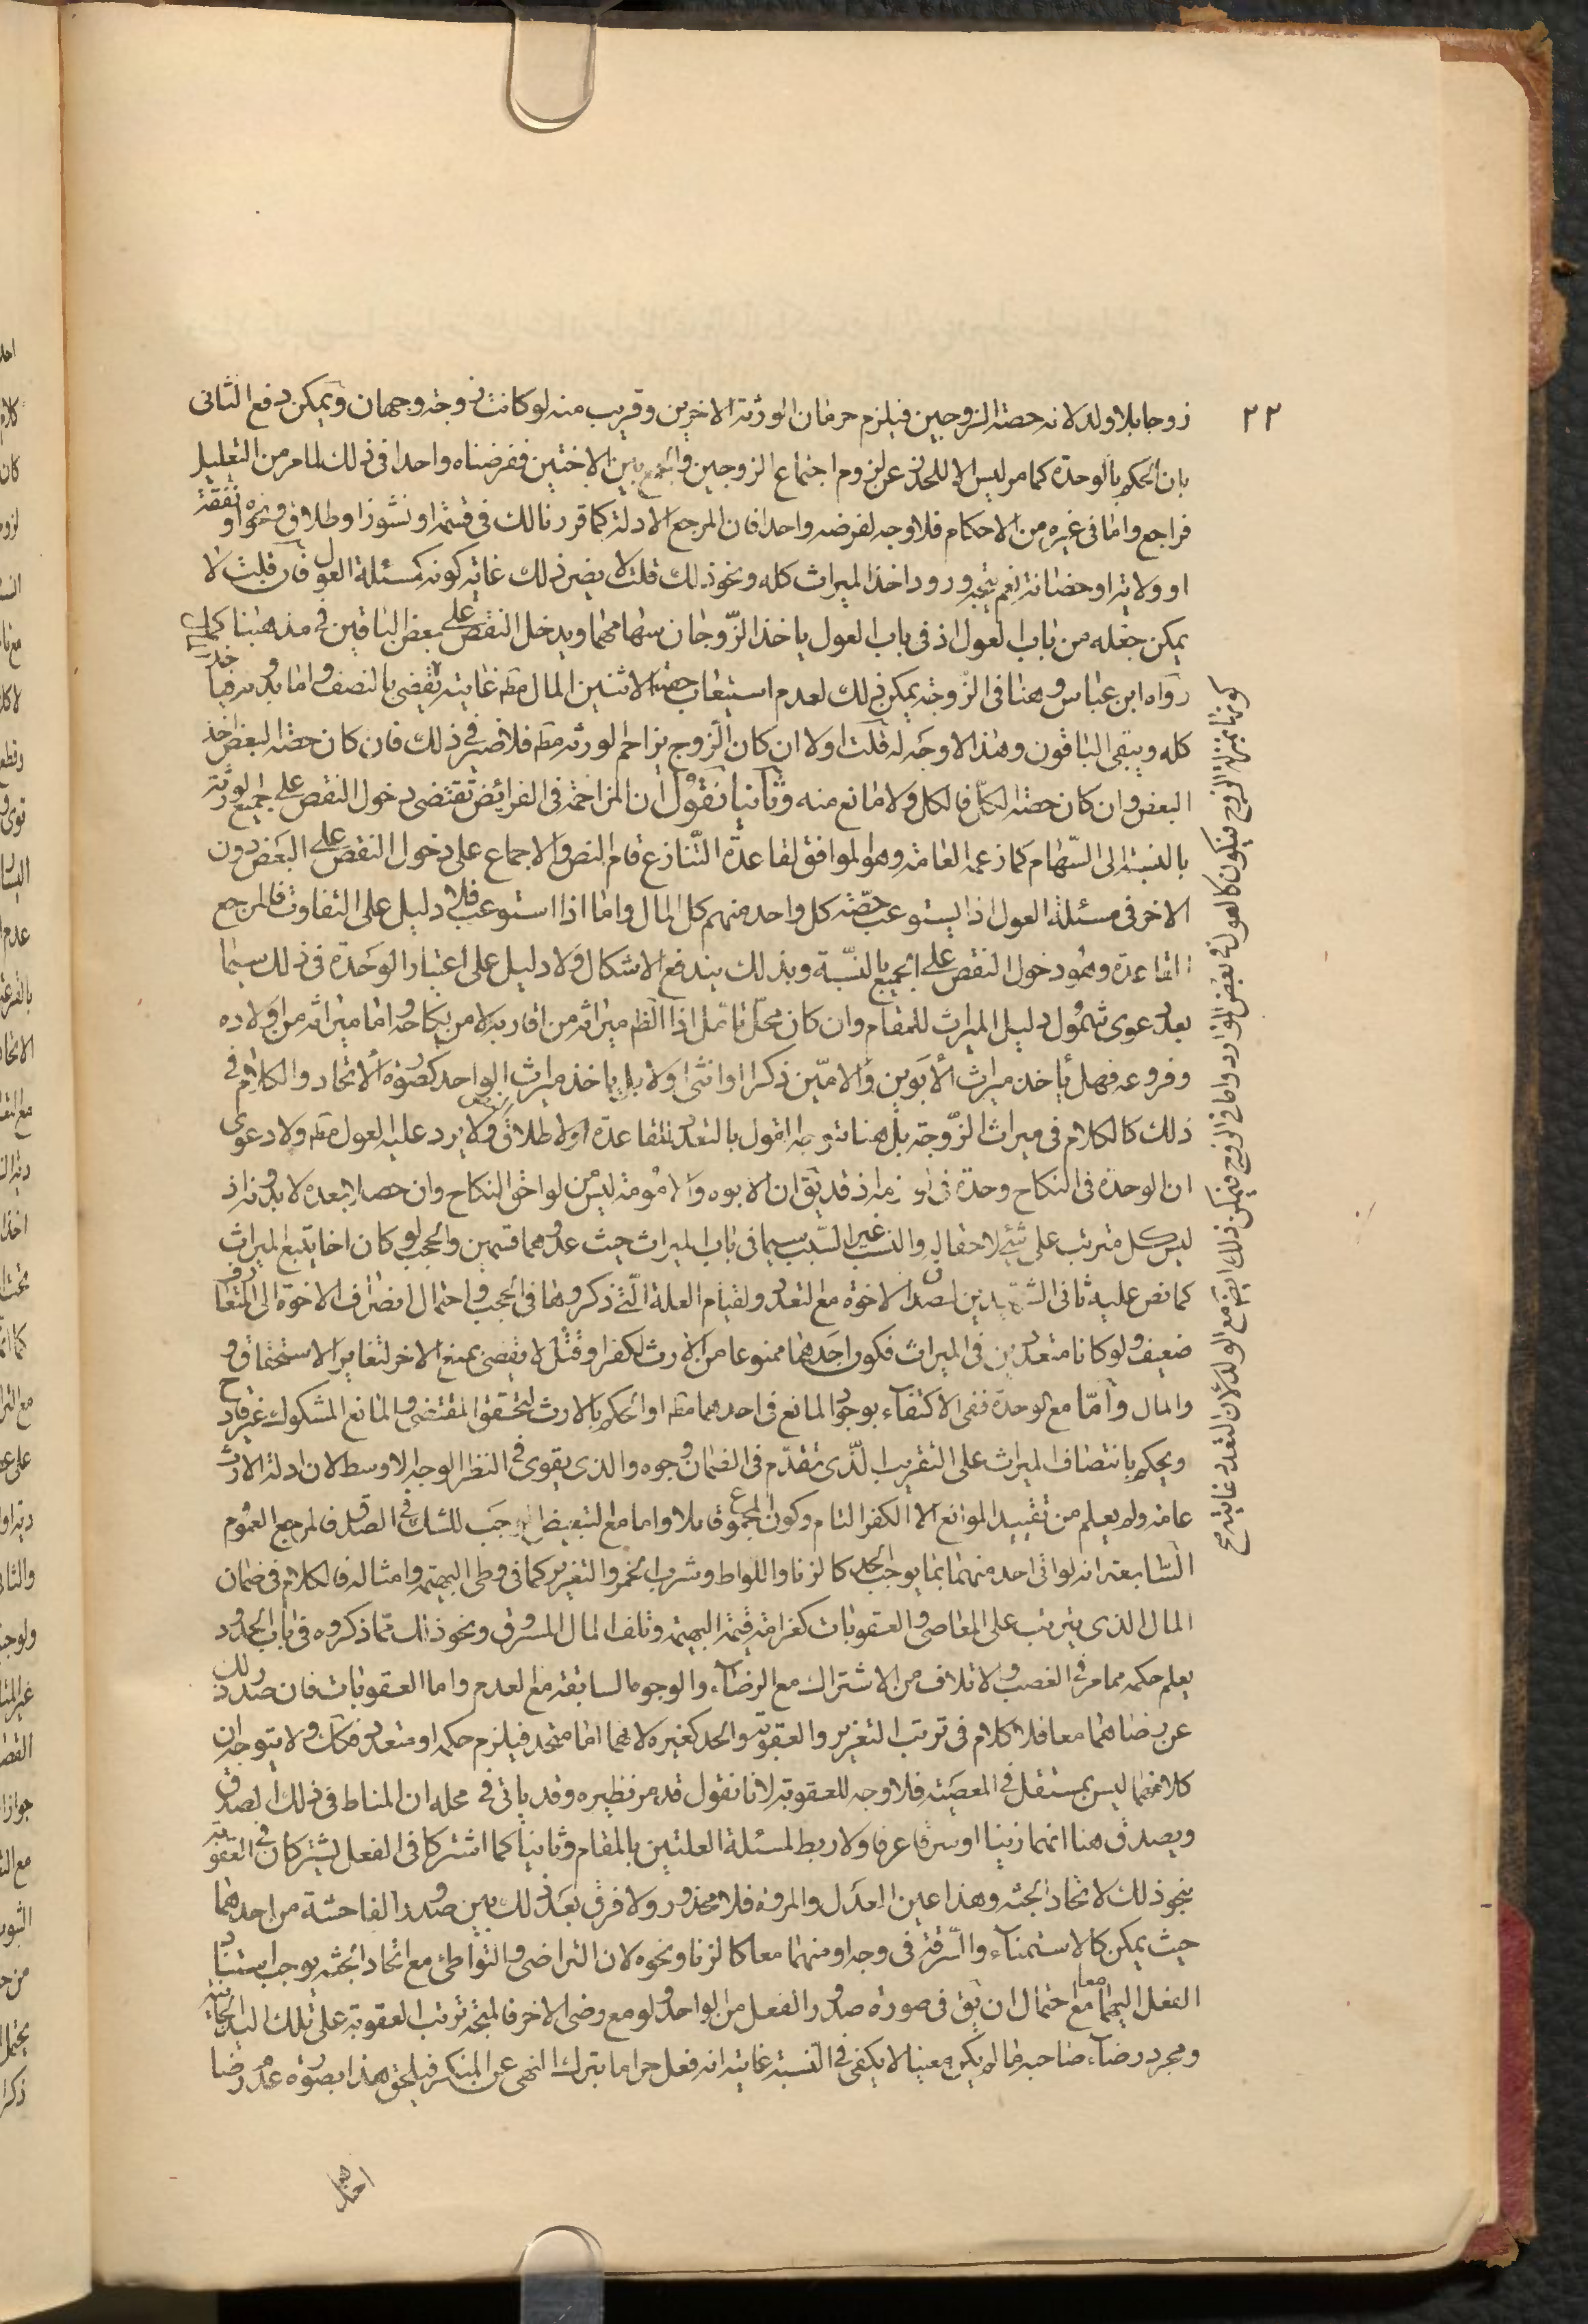 ٢٢
زوجا بلا ولد لانه حصته الزوجين فيلزم حرمان الورثة الاخرين وقريب منه لو كانت زوجة وجهان ويمكن دفع الثانى
بان الحكم بالوحدة كما مر ليس الا للتحذر عن لزوم اجتماع الزوجين والجمع بين الاختين ففرضناه واحدا فى ذلك لما مر من التعليل
فراجع واما فى غيره من الاحكام فلا وجه لفرضه واحدا فان المرجع الادلة كما قررنا لك فى قسمة او نشوز او طلاق ونحوه او نفقة
او ولاية او حضانة نعم يتجه ورود اخذ الميراث كله ونحو ذلك قلت لا يضير ذلك غايته كونه كمسئلة العول فان قلت لا
يمكن جعله من باب العول اذ فى باب العول ياخذ الزوجان سهامهما ويدخل النقص على بعض الباقين فى مذهبنا كما
رواه ابن عباس وهنا فى الزوجة يمكن ذلك لعدم استيعاب حصته الاثنين المال مطه غايته يقضى بالنصف واما بدونه فيا خذ
كله ويبقى الباقون وهذا لا وجه له قلت اولا ان كان الزوج يزاحم الورثة مطه فلا ضير فى ذلك فان كان حصته البعض اخذ
البعض وان كان حصته الكل فالكل ولا مانع منه وثانيا نقول ان المزاحمة فى الفرائض تقتضى دخول النقص على جميع الورثة
بالنسبة الى السهام كما زعمه العامة وهو الموافق لقاعدة التنازع قام النص والاجماع على دخول النقص على البعض دون
الاخر فى مسئلة العول اذا لم يستوعب حصته كل واحد منهم كل المال واما اذا استوعب فلا دليل على التفاوت فالمرجع
القاعدة وهو دخول النقص على الجميع بالنسبة وبذلك يندفع الاشكال ولا دليل على اعتبار الوحدة فى ذلك سيما
بعد دعوى شمول دليل الميراث للمقام وان كان محل تامل اذا الظم ميراثه من اقاربه لا من نكاحه واما ميراثه من اولاده
وفروعه فهل ياخذ ميراث الابوين والامين ذكرا او انثى اولا بل ياخذ ميراث الواحد كصورة الاتحاد والكلام فى
ذلك كالكلام فى ميراث الزوجة بل هنا يتوجه القول بالتعدد للقاعدة ولاطلاق ولا يرد عليه العول مطه ولا دعوى
ان الوحدة فى النكاح وحدة فى لوازمه اذ قد يق ان الابوه والامومة ليس من لواحق النكاح وان حصلا بعده لا بدونه اذ
ليس كل مترتب على شئ لاحقا له والنسب غير السبب سيما فى باب الميراث حيث عدوهما قسمين والحجب لو كان اخا يتبع الميراث
كما نص عليه ثانى الشهيدين لصدق الاخوة مع التعدد ولقيام العلة التى ذكروها فى الحجب واحتمال انصراف الاخوة الى المتعارف
ضعيف ولو كانا متعددين فى الميراث فكون احدهما ممنوعا من الارث لكفر او قتل لا يقضى بمنع الاخر لتغاير الاستحقاق و
والمال واما مع الوحدة ففى الاكتفاء بوجود المانع فى احدهما مطه او الحكم بالارث لتحقق المقتضى والمانع المشكوك غير قادح
ويحكم بانتصاف الميراث على التقريب الذى تقدم فى الضمان وجوه والذى يقوى فى النظر الوجه الاوسط لان ادلة الارث
عامة ولم يعلم من تقييد الموانع الا الكفر التام وكون المجموع قاتلا واما مع التبعيض يوجب للشك فى الصدق فالمرجع العموم
السابعة انه لو اتى احد منهما بما يوجب الحد كالزنا واللواط وشرب الخمر والتعزير كما فى وطى البهيمة وامثاله فالكلام فى ضمان
المال الذى يترتب على المعاصى والعقوبات كغرامة قيمة البهيمة وتلف المال المسروق ونحو ذلك مما ذكروه فى باب الحدود
يعلم حكمه مما مر فى الغصب والاتلاف من الاشتراك مع الرضاء والوجوه السابقة مع العدم واما العقوبات فان صدر ذلك
عن رضاهما معا فلا كلام فى ترتب التعزير والعقوبة والحد كغيره لانهما اما متحد فيلزم حكمه او متعدد فكك ولا يتوجه ان
كلا منهما ليس بمستقل فى المعصية فلا وجه للعقوبة لانا نقول قد مر نظيره وقد ياتى فى محله ان المناط فى ذلك الصدق
ويصدق هنا انهما زنيا او سرقا عرفا ولا ربط لمسئلة العلتين بالمقام وثانيا كما اشتركا فى الفعل يشتركان فى العقوبة
بنحو ذلك لاتحاد الجثة وهذا عين العدل والمروة فلا محذور ولا فرق بعد ذلك بين صدور الفاحشة من احدهما
حيث يمكن كالاستمناء والسرقة فى وجه او منهما معا كالزنا ونحوه لان التراضى والتواطئ مع اتحاد الجثة يوجب استناد
الفعل اليهما معا مع احتمال ان يق فى صورة صدور الفعل من الواحد ولو مع رضى الاخر فالمتجه ترتب العقوبة على تلك اليد الجانية
ومجرد رضاء صاحبه ما لم يكن معينا لا يكفى فى النسبة غايته انه فعل حراما بترك النهى عن المنكر فيلحق هذا بصورة عدم رضا
احدهما
كونها بمنزلة الزوج فيكون كالعول فى بعض الموارد واما فى الزوج فيمكن ذلك ايضا مع الولد لان التعدد غايته صح